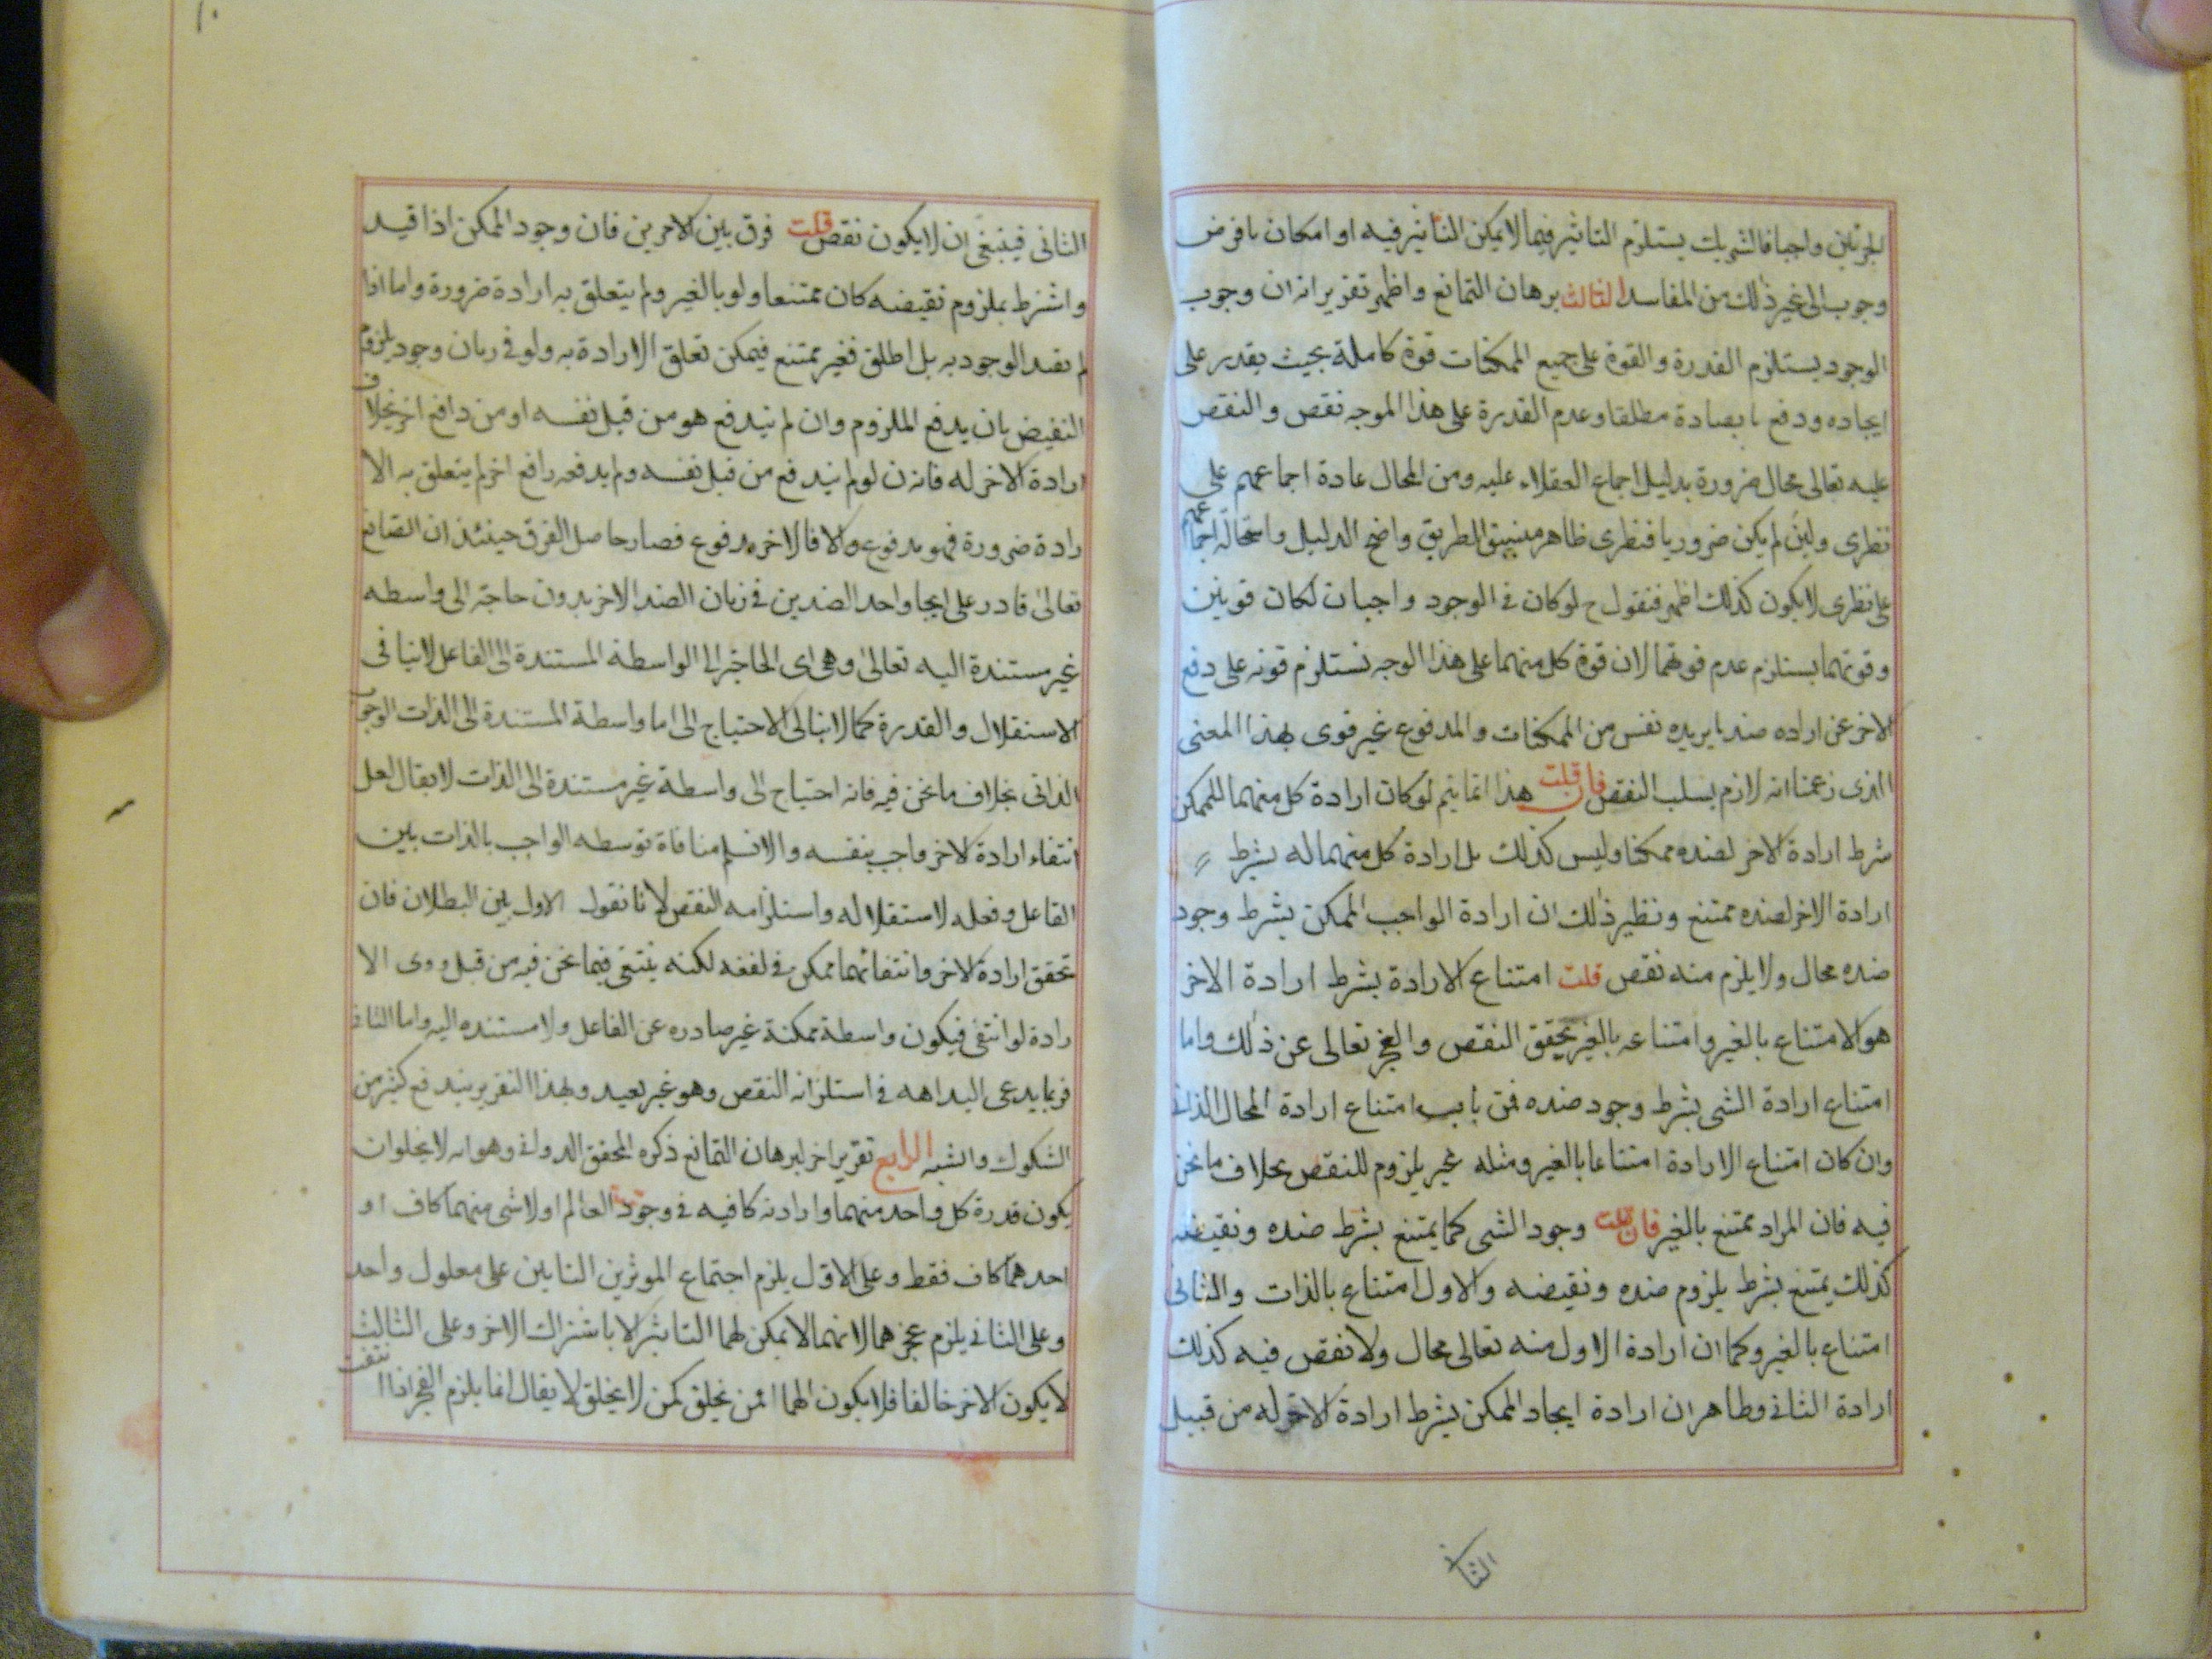 الجزئين واجبا فالشريك يستلزم التاثير فيما لا يمكن التاثير فيه او امكان ما فرض
وجوب الى غير ذلك من المفاسد الثالث برهان التمانع واظهر تقريراته ان وجوب
الوجود يستلزم القدرة والقوة على جميع الممكنات قوة كاملة بحيث يقدر على
ايجاده ودفع ما يضادة مطلقا وعدم القدرة على هذا الموجه نقص والنقص
عليه تعالى محال ضرورة بدليل اجماع العقلاء عليه ومن المحال عادة اجماعهم على
نظرى ولئن لم يكن ضروريا فنظرى ظاهر الطريق واضح الدليل واستحالة اجماعهم
على نظرى لا يكون كذلك اظهر فنقول ح لو كان فى الوجود واجبان لكان قويين
وقوتهما يستلزم عدم قوتهما لان قوة كل منهما على هذا الوجه تستلزم قوته على دفع
الاخر عن اراده ضد ما يريده نفس من الممكنات والمدفوع غير قوى بهذا المعنى
الذى زعمنا انه لازم يسلب النقص فان قلت هذا انما يتم لو كان ارادة كل منهما للممكن
شرط ارادة الاخر لضده ممكنا وليس كذلك بل ارادة كل منهما له بشرط
ارادة الاخر لضده ممتنع ونظير ذلك ان ارادة الواجب الممكن بشرط وجود
ضده محال ولا يلزم منه نقص قلت امتناع الارادة بشرط ارادة الاخر
هو الامتناع بالغير وامتناعه بالغير يحقق النقص والعجز تعالى عن ذلك واما
امتناع ارادة الشى بشرط وجود ضده فمن باب امتناع ارادة المحال الذاتى
وان كان امتناع الارادة امتناعا بالغير ومثله غير يلزوم للنقص بخلاف ما نحن
فيه فان المراد ممتنع بالغير فان قلت وجود الشى كما يمتنع بشرط ضده ونقيضه
كذلك يمتنع بشرط يلزوم ضده ونقيضه والاول امتناع بالذات والثانى
امتناع بالغير وكما ان ارادة الاول منه تعالى محال ولا نقص فيه كذلك
ارادة الثانى وظاهر ان ارادة ايجاد الممكن بشرط ارادة الاخر له من قبيل
الثانى
الثانى فينبغى ان لا يكون نقص قلت فرق بين الامرين فان وجود الممكن اذا قيد
واشترط بملزوم نقيضه كان ممتنعا ولو بالغير ولم يتعلق به ارادة ضرورة واما اذا
لم يقيد الوجود به بل اطلق فغير ممتنع فيمكن تعلق الارادة به ولو فى زمان وجود يلزوم
النقيض بان يدفع الملزوم وان لم يندفع هو من قبل نفسه او من دافع اخر بخلاف
ارادة الاخر له فانه ن لو لم يندفع من قبل نفسه ولم يدفعه رافع اخر لم يتعلق به الا
رادة ضرورة فهو مدفوع والا فالاخر مدفوع فصار حاصل الفرق حينئذ ان الصانع
تعالى قادر على ايجا واحد الضدين فى زمان الضد الاخر بدون حاجة الى واسطه
غير مستندة اليه تعالى وهى اى الحاجة الى الواسطة المستندة الى الفاعل لا ينافى
الاستقلال والقدرة كما لا ينا لى الاحتياج الى اما واسطة المستندة الى الذات الوجوب
الذاتى بخلاف ما نحن فيه فانه احتياج الى واسطة غير مستندة الى الذات لا يقال لعل
انتفاء ارادة الاخر واجب بنفسه والا نسلم منافاة توسطه الواجب بالذات بين
الفاعل وفعله لاستقلاله واستلزامه النقص لانا نقول الاول بين البطلان فان
تحقق ارادة الاخر وانتفائهما ممكن فى لكنه ينتفى فيما نحن فيه من قبل الا
رادة لو انتفى فيكون واسطة ممكنة غير صادره عن الفاعل ولا مستنده اليه واما الثانى
فربما يدعى البداهه فى استلزانه النقص وهو غير بعيد وبهذا التقرير يندفع كثير من
الشكوك والشبه الرابع تقرير اخر لبرهان التمانع ذكره المحقق الدوانى وهو انه لا يخلو ان
يكون قدرة كل واحد منهما وارادته كافيه فى وجود العالم او لا شى منهما كاف او
احدهما كاف فقط وعلى الاول يلزم اجتماع الموثرين التابين على معلول واحد
وعلى الثانى يلزم عجزهما لانهما لا يمكن لهما التاثير الا باشتراك الاخر وعلى الثالث
لا يكون الاخر خالقا فلا يكون الها افمن يخلق كمن لا يخلق لا يقال انما يلزم العجز اذا انتفت